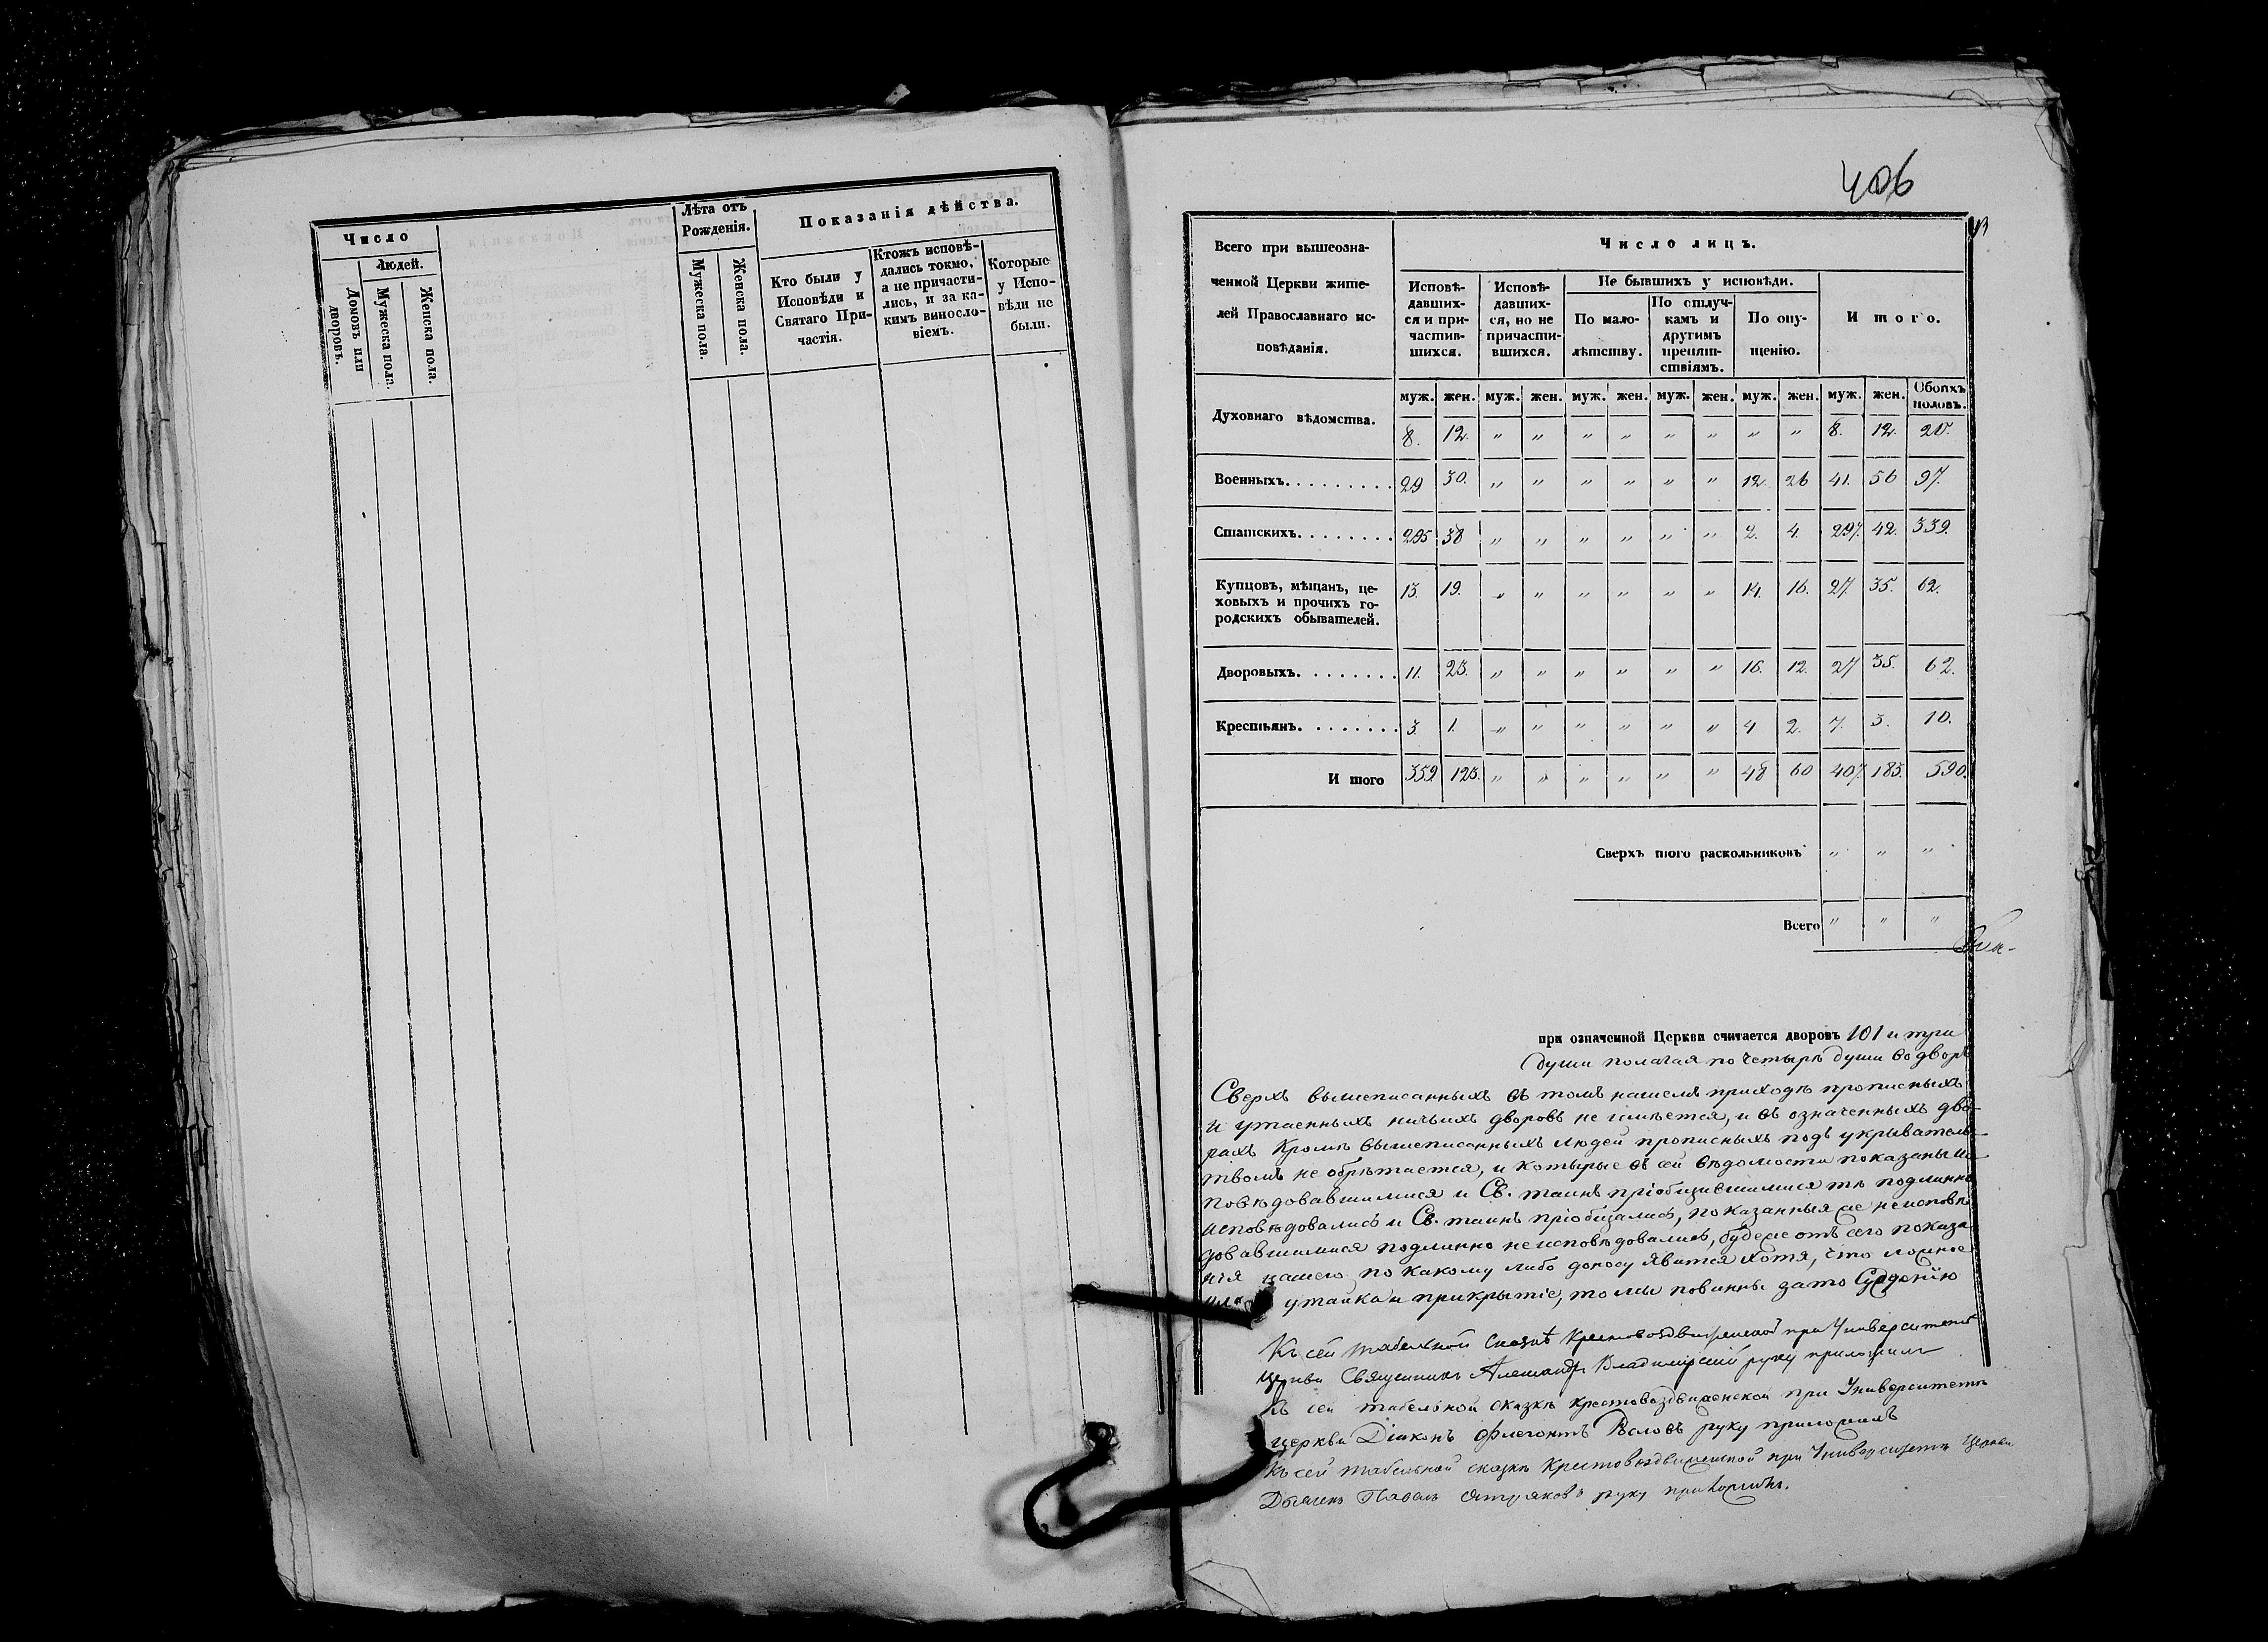 Число
Людей.
Домовъ или дворовъ.
Мужеска пола.
Женска пола.
Лѣта отъ Рожденія.
Мужеска пола.
Женска пола.
Показанія дѣйства.
Кто были у
Исповѣди и
Святаго При-
частія.
Ктожъ исповѣ-
дались токмо,
а не причасти-
лись, и за ка-
кимъ винослo-
віемъ.
Которые
у Испо-
вѣди не
были.
406
Всего при вышеозна-
ченной Церкви жите-
лей Православнаго ис-
повѣданія.
Число лицъ.
Исповѣ-
давших-
ся и при-
частив-
шихся.
Исповѣ-
давших-
ся, но не
причасти-
вшихся.
Не бывшихъ у исповѣди.
По мало-
лѣтству.
По отлуч-
камъ и
другимъ
препят-
ствіямъ.
По опу-
щенію.
Итого.
муж. жен. муж. жен. муж. жен. муж. жен. муж. жен. муж. жен. Обоихъ половъ.
Духовнаго вѣдомства. 8. 12. " " " " " " " " 8. 12. 20.
Военныхъ. 29 30. " " " " " " 12. 26 41. 56 97.
Статскихъ. 295 38 " " " " " " 2. 4. 297. 42. 339.
Купцовъ, мѣщанъ, це-
ховыхъ и прочихъ го-
родскихъ обывателей. 13. 19. " " " " " " 14. 16. 27. 35. 62.
Дворовыхъ. 11. 23. " " " " " " 16. 12. 27 35. 62.
Крестьянъ. 3. 1. " " " " " " 4 2. 7. 3. 10.
Итого 359 123. " " " " " " 48 60 407. 183. 590.
Сверхъ того раскольниковъ " " "
Всего " " "
при означенной Церкви считается дворовъ 101 и три
души полагая по четыре души во дворѣ
Сверхъ вышеписанныхъ въ томъ нашемъ приходѣ прописныхъ
и утаенныхъ ничьихъ дворовъ не имѣется, и въ означенныхъ дво-
рахъ Кромѣ вышеписанныхъ людей прописныхъ подъ укрыватель-
твомъ не обрѣтается, и которые въ сей вѣдомости показаны ис-
повѣдовавшимися и Св. таинъ пріобщившимися тѣ подлинно
исповѣдовались и Св. таинъ пріобщались, показанныя же неисповѣ
довавшимися подлинно неисповѣдовались, будеже отъ сего показа
нія нашего по какому либо доносу явится хотя, что ложное
утайка и прикрытіе, то мы повинны зато Сужденію
Къ сей табельной сказкѣ Крестовоздвиженской при Университетѣ
Церкви Священникъ Александръ Владимірскій руку приложилъ
Къ сей табельной сказкѣ Крестовоздвиженской при Университетѣ
Церкви Діаконъ Флегонтъ руку приложилъ
Къ сей табельной сказкѣ Крестовоздвиженской при Университетѣ Церкви
Дьячекъ Павелъ руку приложилъ.